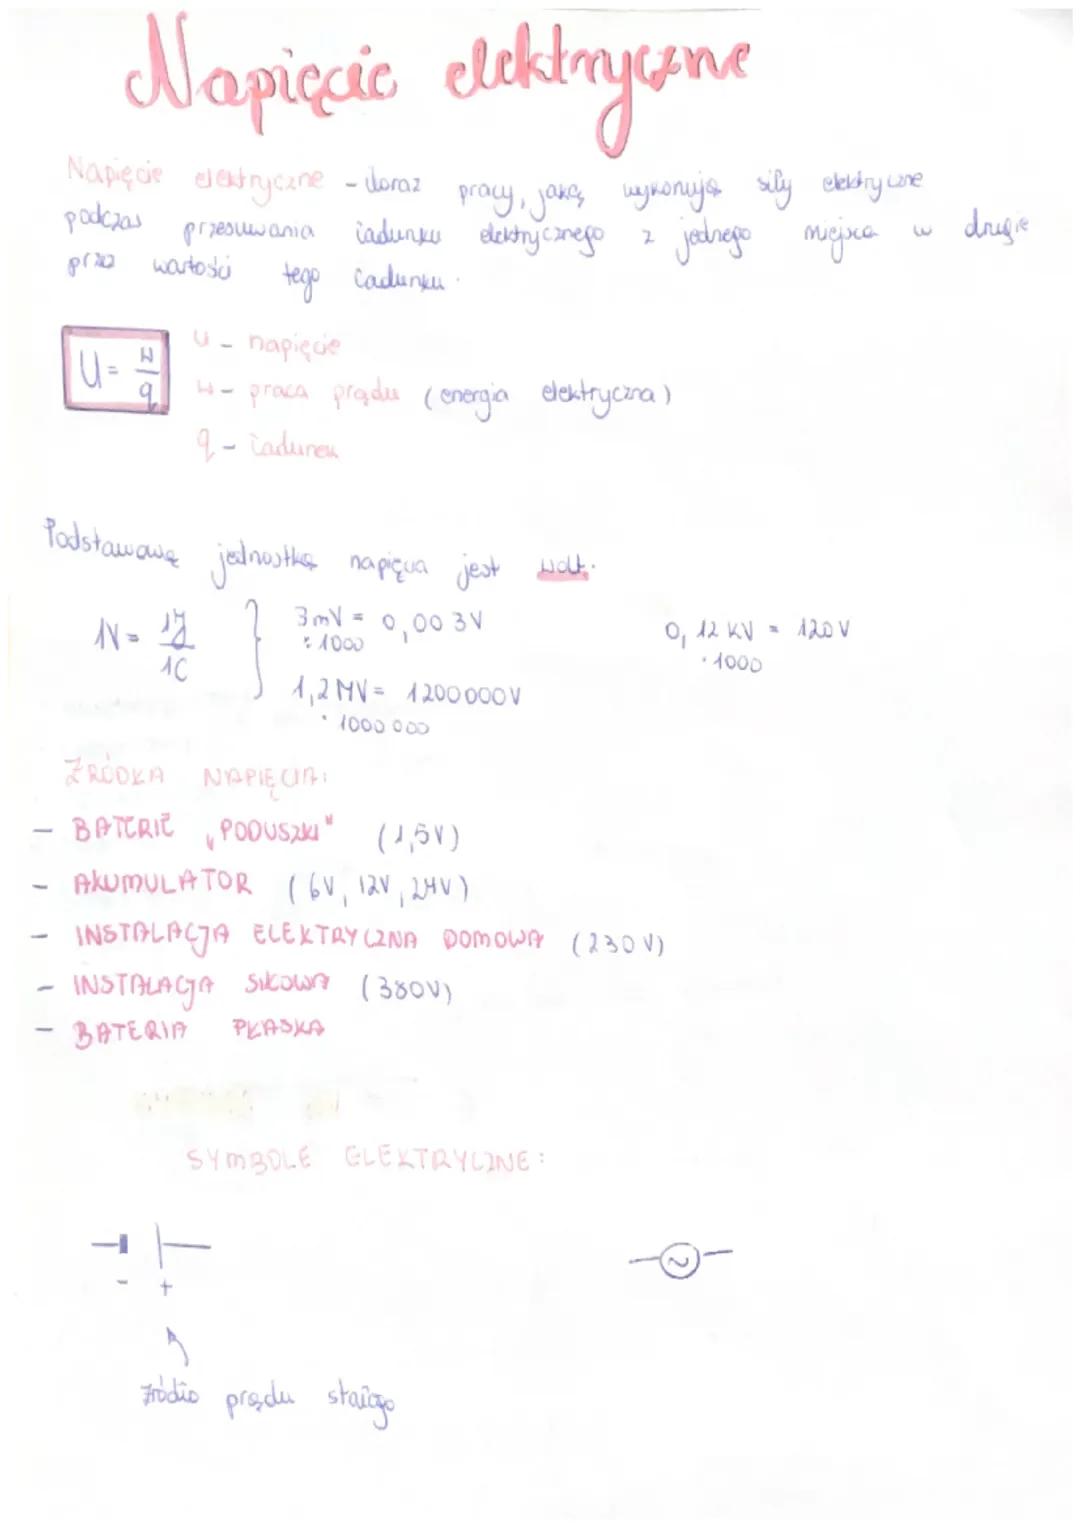 Napięcie elektryczne
Napięcie elektryczne - iloraz pracy, jaką wykonują siły elektryczne
podczas przesuwania ładunku elektrycznego z jednego miejsca w drugie
przez wartości tego ładunku.
U = W/q
U - napięcie
W - praca prądu (energia elektryczna)
q - ładunek
Podstawową jednostką napięcia jest wolt.
1V = 1J/1C } 3mV = 0,003V 0,12 kV = 120V
: 1000 · 1000
1,2 MV = 1200000V
· 1000 000
ŹRÓDŁA NAPIĘCIA:
- BATERIE „PODUSZKI" (1,5V)
- AKUMULATOR (6V, 12V, 24V)
- INSTALACJA ELEKTRYCZNA DOMOWA (230V)
- INSTALACJA SIŁOWA (380V)
- BATERIA PŁASKA
SYMBOLE ELEKTRYCZNE:
- +
źródło prądu stałego